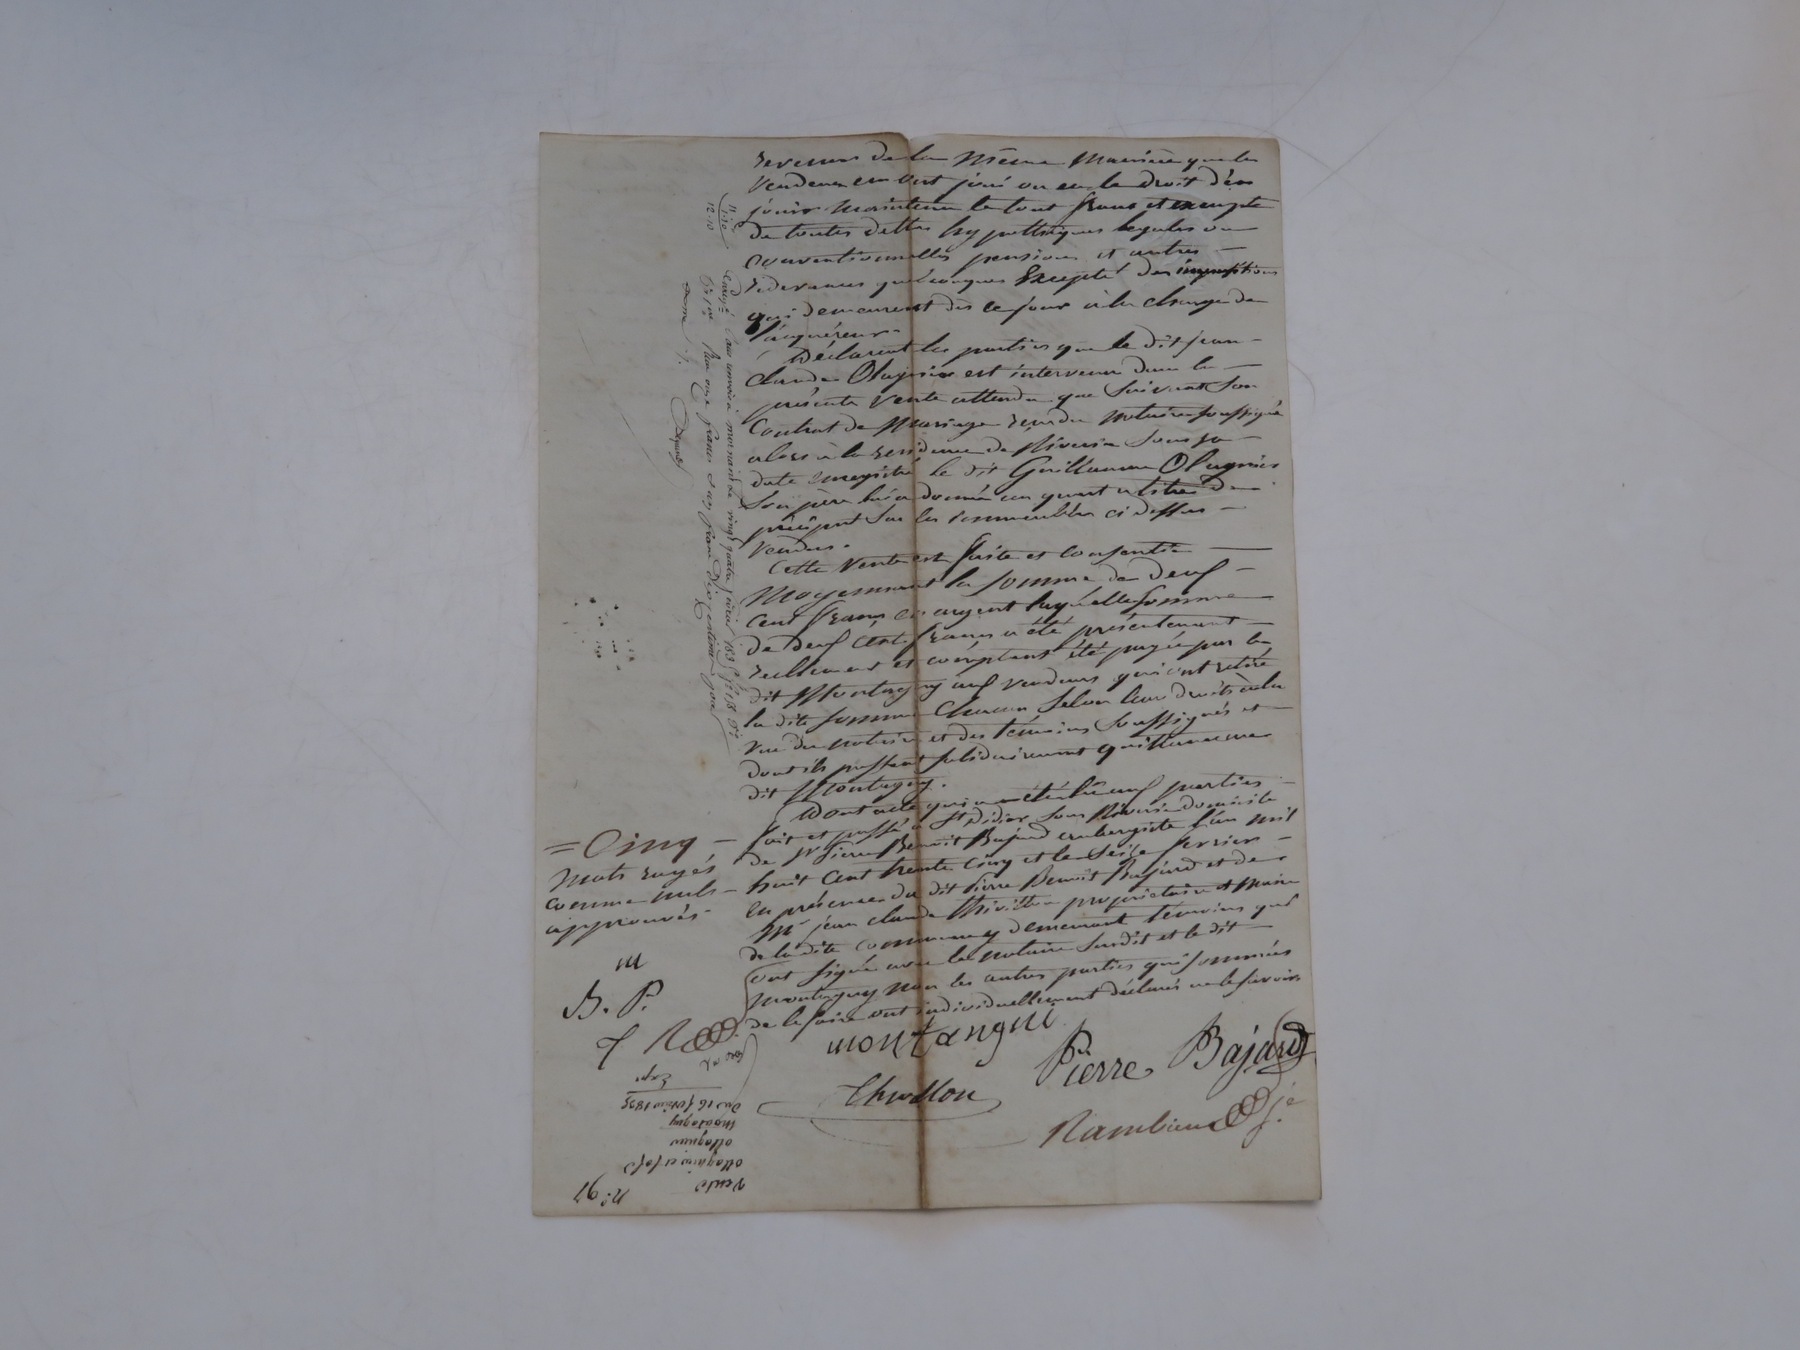 revenus de la même manière que les
vendeurs en ont joui ou eu le droit d'en
jouir maintenu le tout franc et exempte
de toutes dettes hypothèques légales ou
conventionnelles pensions et autres
redevances quelconques Excepté des impositions
qui demeurent dès ce jour à la charge de
l'acquéreur.
Déclarent les parties que le dit jean
claude Olagnier est intervenu dans la
présente vente attendu que suivant son
Contrat de Mariage reçu du notaire soussigné
alors à la résidence de Riverie sous sa
date enregistré le dit Guillaume Olagnier
son père lui a donné un quart à titre de
préciput sur les immeubles ci dessus
vendus.
Cette Vente est faite et consentie
Moyennant la somme de deuf
cent francs en argent laquelle somme
de deuf cent francs a été présentement
réellement et comptant été payée par le
dit Montagny auf vendeurs qui ont retiré
la dite somme chacun selon leur droits à la
vue du notaire et des témoins soussignés et
dont ils passent solidairement quittance au
dit Montagny.
Dont acte qui a été lû auf parties
fait et passé à St Didier sous Riverie domicile
de Sr Pierre Benoît Bajard aubergiste l'an mil
huit cent trente cinq et le Seize fevrier
en présence du dit Pierre Benoît Bajard et de
Mr jean claude Thivillon propriétaire et Maire
de la dite commune y demeurant témoins qui
ont signé avec le notaire susdit et le dit
Montagny non les autres parties qui sommées
de le faire ont individuellement déclaré ne le savoir
= Cinq
Mots rayés
comme nuls
approuvés
m
B. P.
T R
montangni
Pierre Bajard
Thivollon
Rambaud
Enregistré à mornant le vingt quatre février 1835
Reçu onze francs
dixième
11
1.10
12.10
N° 97
Vente
ollagnier et fils
ollagnier
Montagny
Du 16 février 1835
Exp.